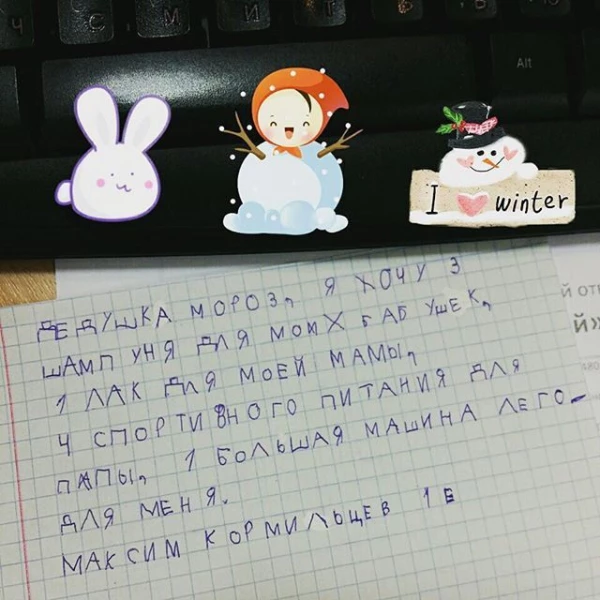 Ч С М И Т Ь
Alt
I winter
ДЕДУШКА МОРОЗ, Я ХОЧУ 3
ШАМПУНЯ ДЛЯ МОИХ БАБУШЕК,
1 ЛАК ДЛЯ МОЕЙ МАМЫ,
4 СПОРТИВНОГО ПИТАНИЯ ДЛЯ
ПАПЫ, 1 БОЛЬШАЯ МАШИНА ЛЕГО
ДЛЯ МЕНЯ.
МАКСИМ КОРМИЛЬЦЕВ 1 В